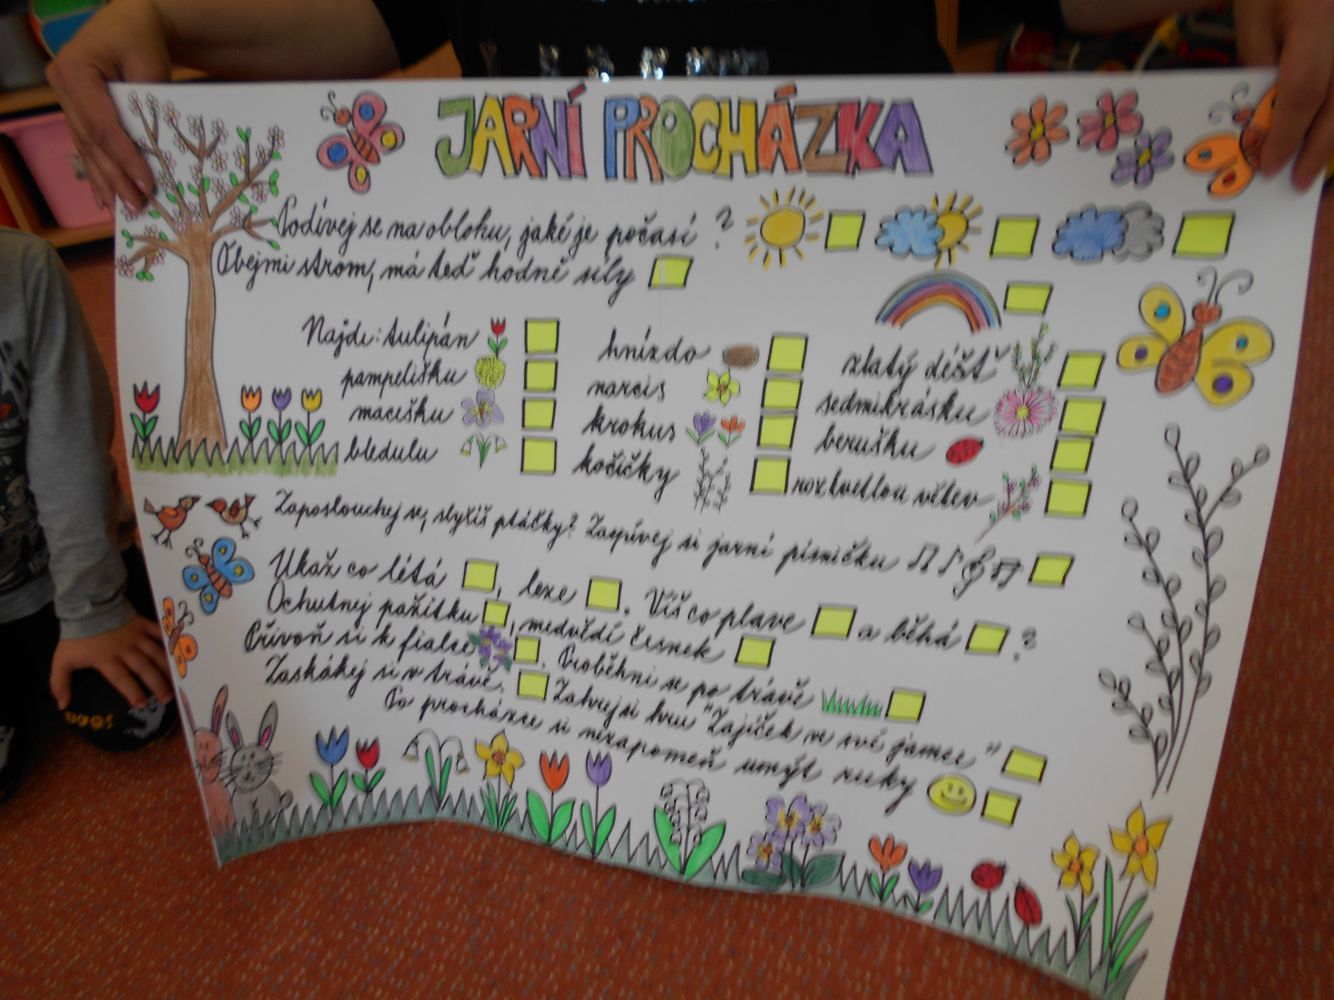 JARNÍ PROCHÁZKA
Podívej se na oblohu, jaké je počasí ?
Obejmi strom, má teď hodně síly
Najdi: tulipán hnízdo zlatý déšť
pampelišku narcis sedmikrásku
macešku krokus berušku
bledulu kočičky rozkvetlou větev
Zaposlouchej se, slyšíš ptáčky? Zazpívej si jarní písničku
Ukaž co létá , leze . Víš co plave a běhá ?
Ochutnej pažitku , medvědí česnek
Přivoň si k fialce . Proběhni se po trávě
Zaskákej si v trávě. Zahrej si hru "Zajíček ve své jamce"
Po procházce si nezapomeň umýt ruky